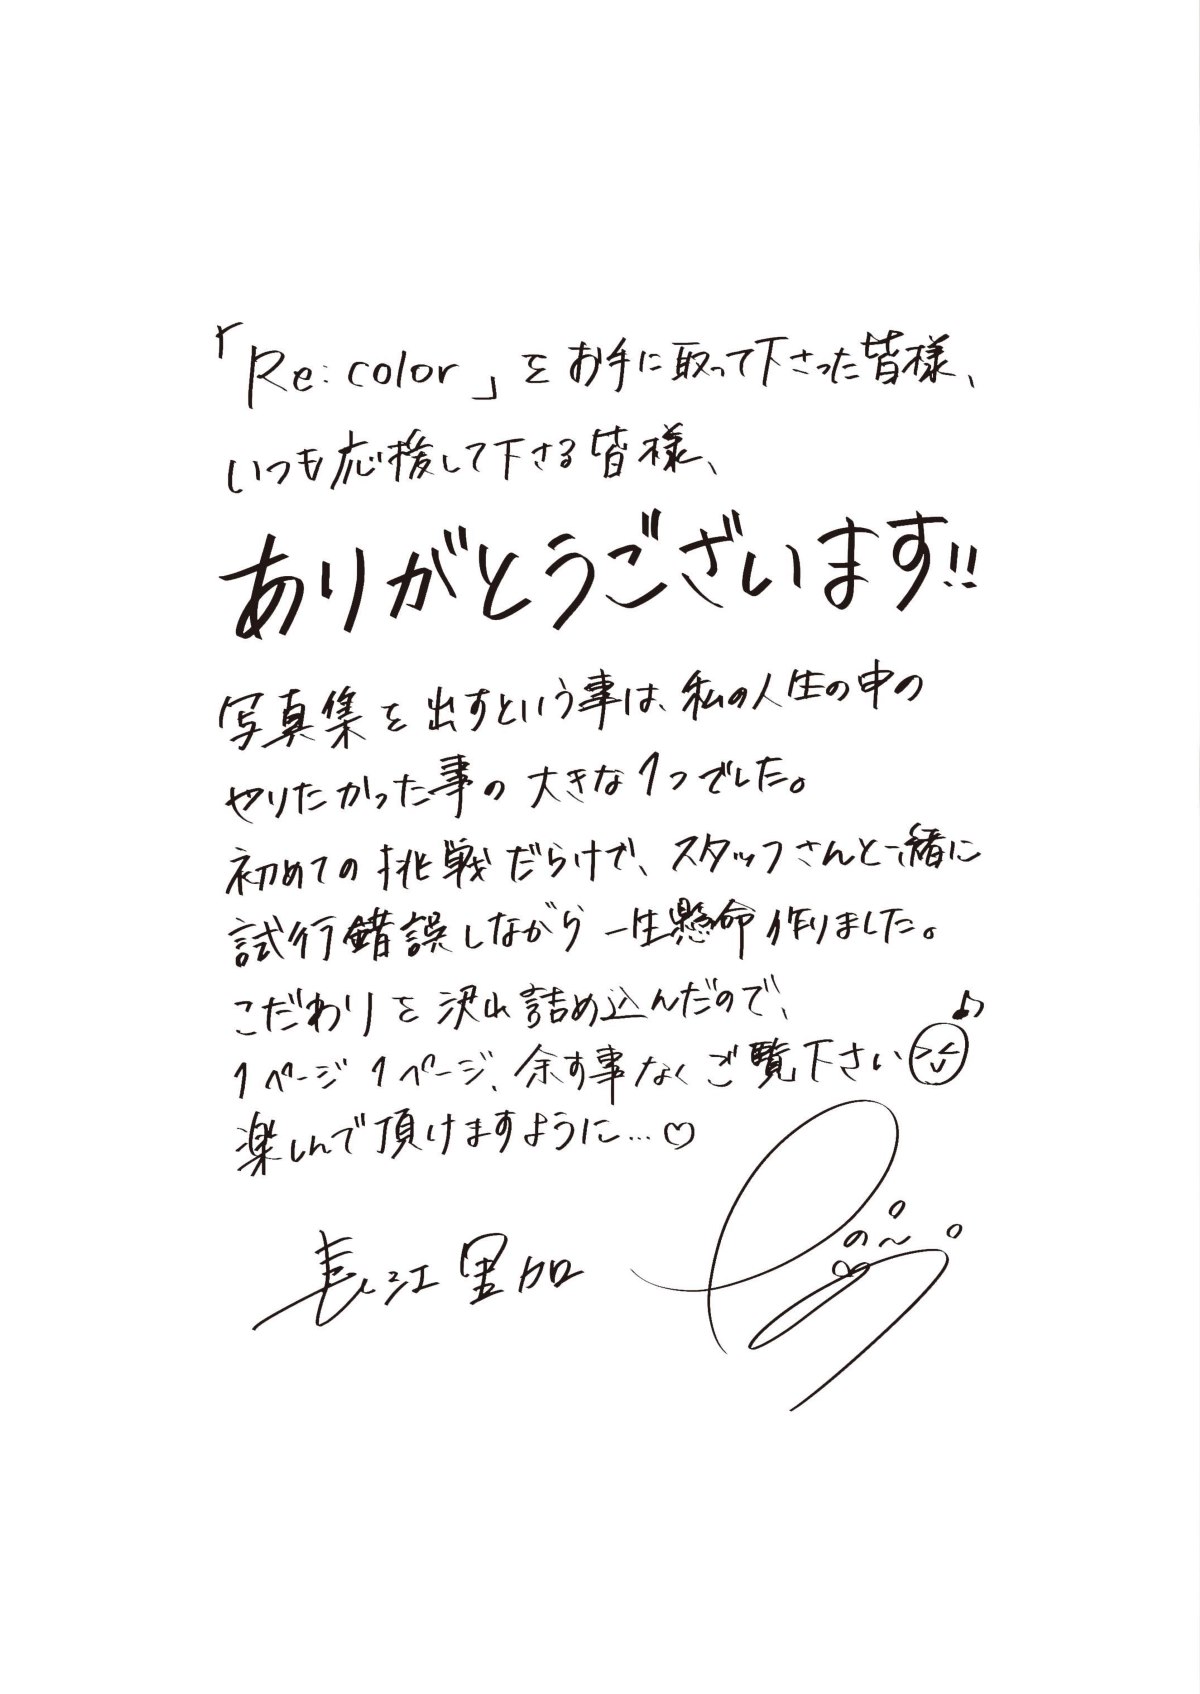 「Re:color」をお手に取って下さった皆様、
いつも応援して下さる皆様、
ありがとうございます!!
写真集を出すという事は、私の人生の中の
やりたかった事の大きな1つでした。
初めての挑戦だらけで、スタッフさんと一緒に
試行錯誤しながら一生懸命作りました。
こだわりを沢山詰め込んだので、
1ページ1ページ、余す事なくご覧下さい♪
楽しんで頂けますように…♡
長江里加